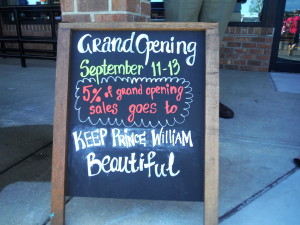 Grand Opening
September 11-13
5% of grand opening
sales goes to
KEEP PRINCE WILLIAM
Beautiful